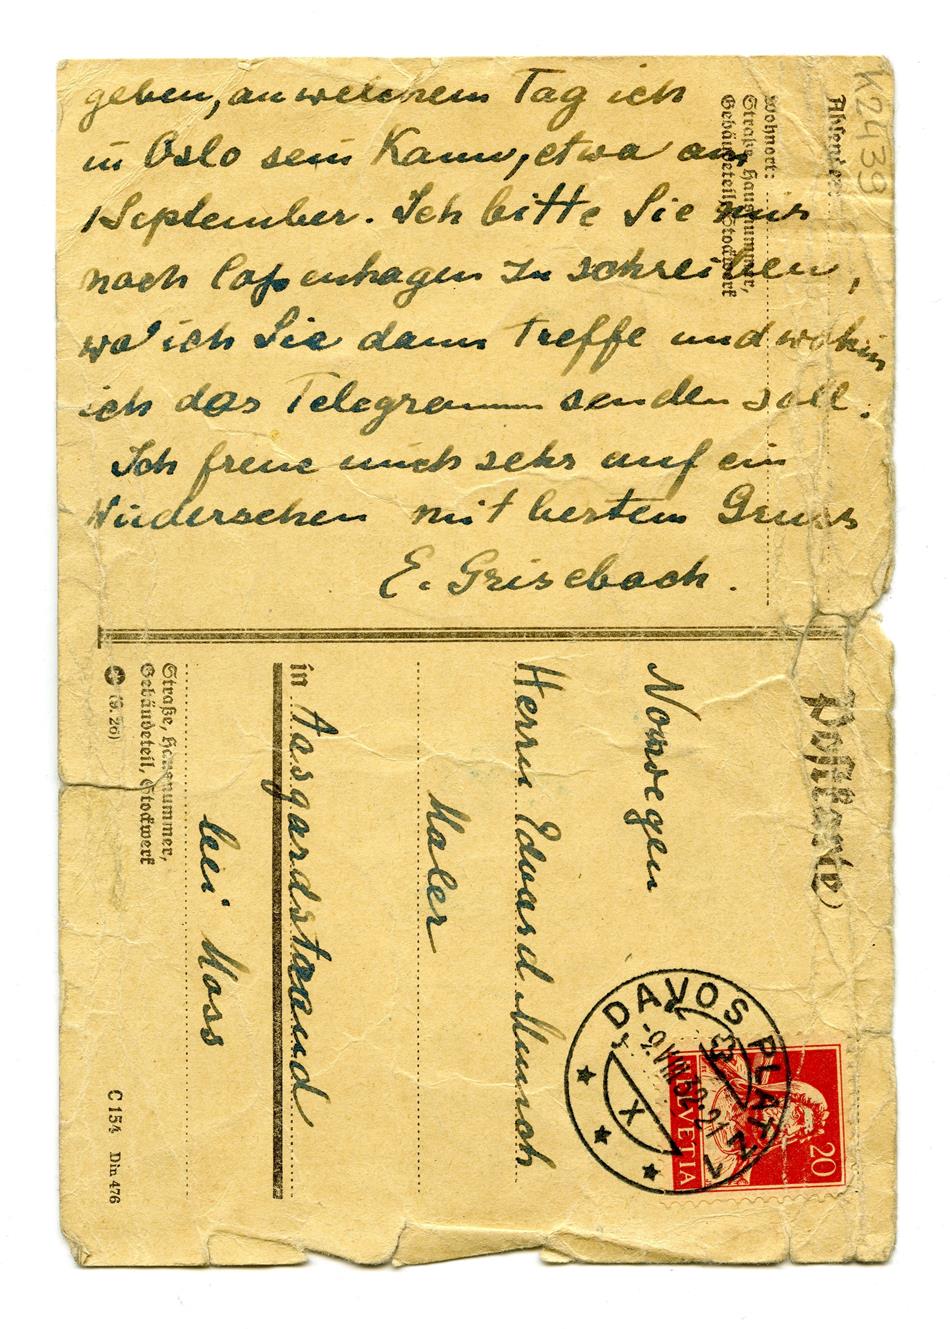 geben, an welchem Tag ich
in Oslo sein Kann, etwa am
1 September. Ich bitte Sie mir
nach Copenhagen zu schreiben,
wo ich Sie dann treffe und wohin
ich das Telegramm senden soll.
Ich freue mich sehr auf ein
Wiedersehen mit bestem Gruss
E. Grisebach.
K2439
Absender:
Wohnort:
Straße, Hausnummer,
Gebäudeteil, Stockwerk
Postkarte
Norwegen
Herrn Edward Munch
Maler
in Aasgardstrand
bei Moss
Straße, Hausnummer,
Gebäudeteil, Stockwerk
(9. 26)
C 154 Din 476
DAVOS PLATZ 1
VIII 32-21
X
HELVETIA
20